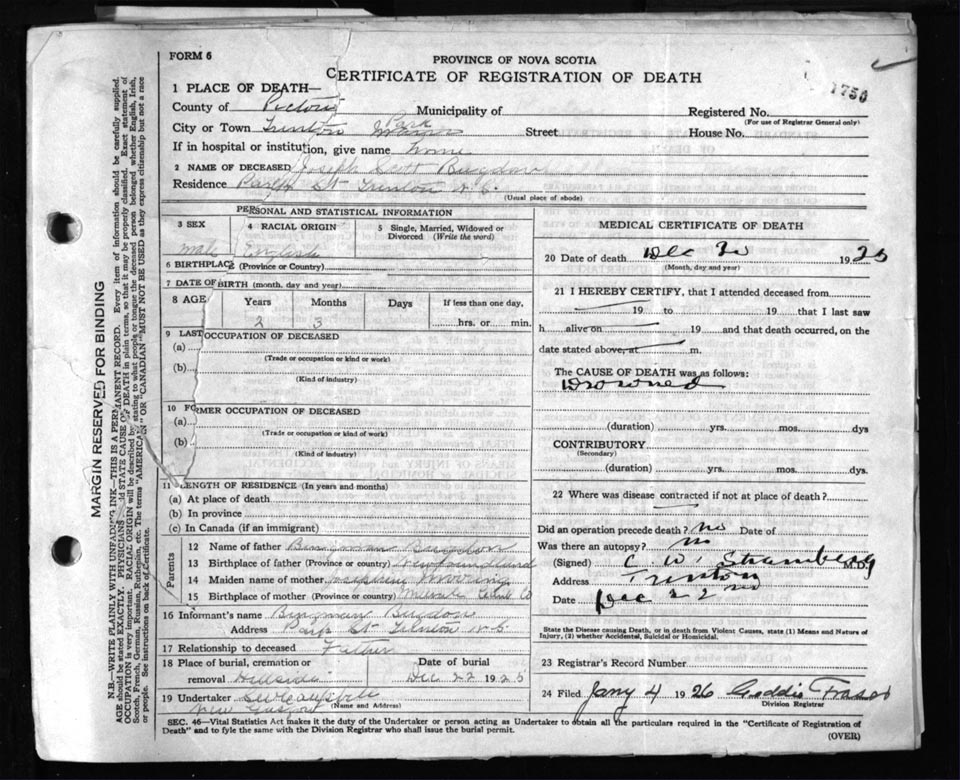 FORM 6
PROVINCE OF NOVA SCOTIA
CERTIFICATE OF REGISTRATION OF DEATH
1 PLACE OF DEATH—
1756
County of Pictou Municipality of Registered No.
(For use of Registrar General only)
City or Town Trenton Park Street House No.
If in hospital or institution, give name home
2 NAME OF DECEASED Joseph Scott Bugdon
Residence Park St Trenton N.S.
(Usual place of abode)
PERSONAL AND STATISTICAL INFORMATION
3 SEX 4 RACIAL ORIGIN 5 Single, Married, Widowed or Divorced (Write the word)
male English
6 BIRTHPLACE (Province or Country)
7 DATE OF BIRTH (month, day and year)
8 AGE Years Months Days If less than one day,
2 3 hrs. or min.
9 LAST OCCUPATION OF DECEASED
(a)
(Trade or occupation or kind or work)
(b)
(Kind of industry)
10 FORMER OCCUPATION OF DECEASED
(a)
(Trade or occupation or kind of work)
(b)
(Kind of industry)
11 LENGTH OF RESIDENCE (In years and months)
(a) At place of death
(b) In province
(c) In Canada (if an immigrant)
Parents
12 Name of father Bugdon
13 Birthplace of father (Province or country) Newfoundland
14 Maiden name of mother
15 Birthplace of mother (Province or country) Co
16 Informant's name Bugdon
Address Park St Trenton N.S.
17 Relationship to deceased Father
18 Place of burial, cremation or Date of burial
removal Hillside Dec 22 1925
19 Undertaker
(Name and Address)
New Glasgow
MEDICAL CERTIFICATE OF DEATH
20 Date of death Dec 20 1925
(Month, day and year)
21 I HEREBY CERTIFY, that I attended deceased from
19 to 19 that I last saw
h alive on 19 and that death occurred, on the
date stated above, at m.
The CAUSE OF DEATH was as follows:
Drowned
(duration) yrs. mos. dys
CONTRIBUTORY
(Secondary)
(duration) yrs. mos. dys.
22 Where was disease contracted if not at place of death?
Did an operation precede death? no Date of
Was there an autopsy? no
(Signed) C W M.D.
Address Trenton
Date Dec 22
State the Disease causing Death, or in death from Violent Causes, state (1) Means and Nature of
Injury, (2) whether Accidental, Suicidal or Homicidal.
23 Registrar's Record Number
24 Filed Jany 4 1926 Geddie Fraser
Division Registrar
SEC. 46—Vital Statistics Act makes it the duty of the Undertaker or person acting as Undertaker to obtain all the particulars required in the "Certificate of Registration of
Death" and to fyle the same with the Division Registrar who shall issue the burial permit.
(OVER)
MARGIN RESERVED FOR BINDING
N.B.—WRITE PLAINLY WITH UNFADING INK—THIS IS A PERMANENT RECORD. Every item of information should be carefully supplied.
AGE should be stated EXACTLY. PHYSICIANS should STATE CAUSE OF DEATH in plain terms, so that it may be properly classified. Exact statement of
OCCUPATION is very important. RACIAL ORIGIN will be described by stating to what people or tongue the deceased person belonged whether English, Irish,
Scotch, French, German, Russian, Ruthenian, etc. The terms "AMERICAN" OR "CANADIAN" MUST NOT BE USED as they express citizenship but not a race
or people. See instructions on back of Certificate.